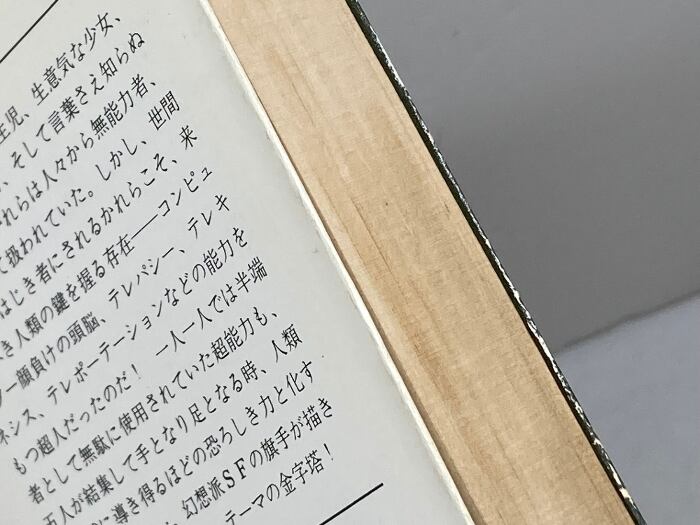 生児、生意気な少女、
、そして言葉さえ知らぬ
れらは人々から無能力者、
て扱われていた。しかし、世間
はじき者にされるかれらこそ、来
き人類の鍵を握る存在――コンピュ
ー顔負けの頭脳、テレパシー、テレキ
ネシス、テレポーテーションなどの能力を
もつ超人だったのだ! 一人一人では半端
者として無駄に使用されていた超能力も、
五人が結集して手となり足となる時、人類
に導き得るほどの恐ろしき力と化す
幻想派SFの旗手が描き
テーマの金字塔!